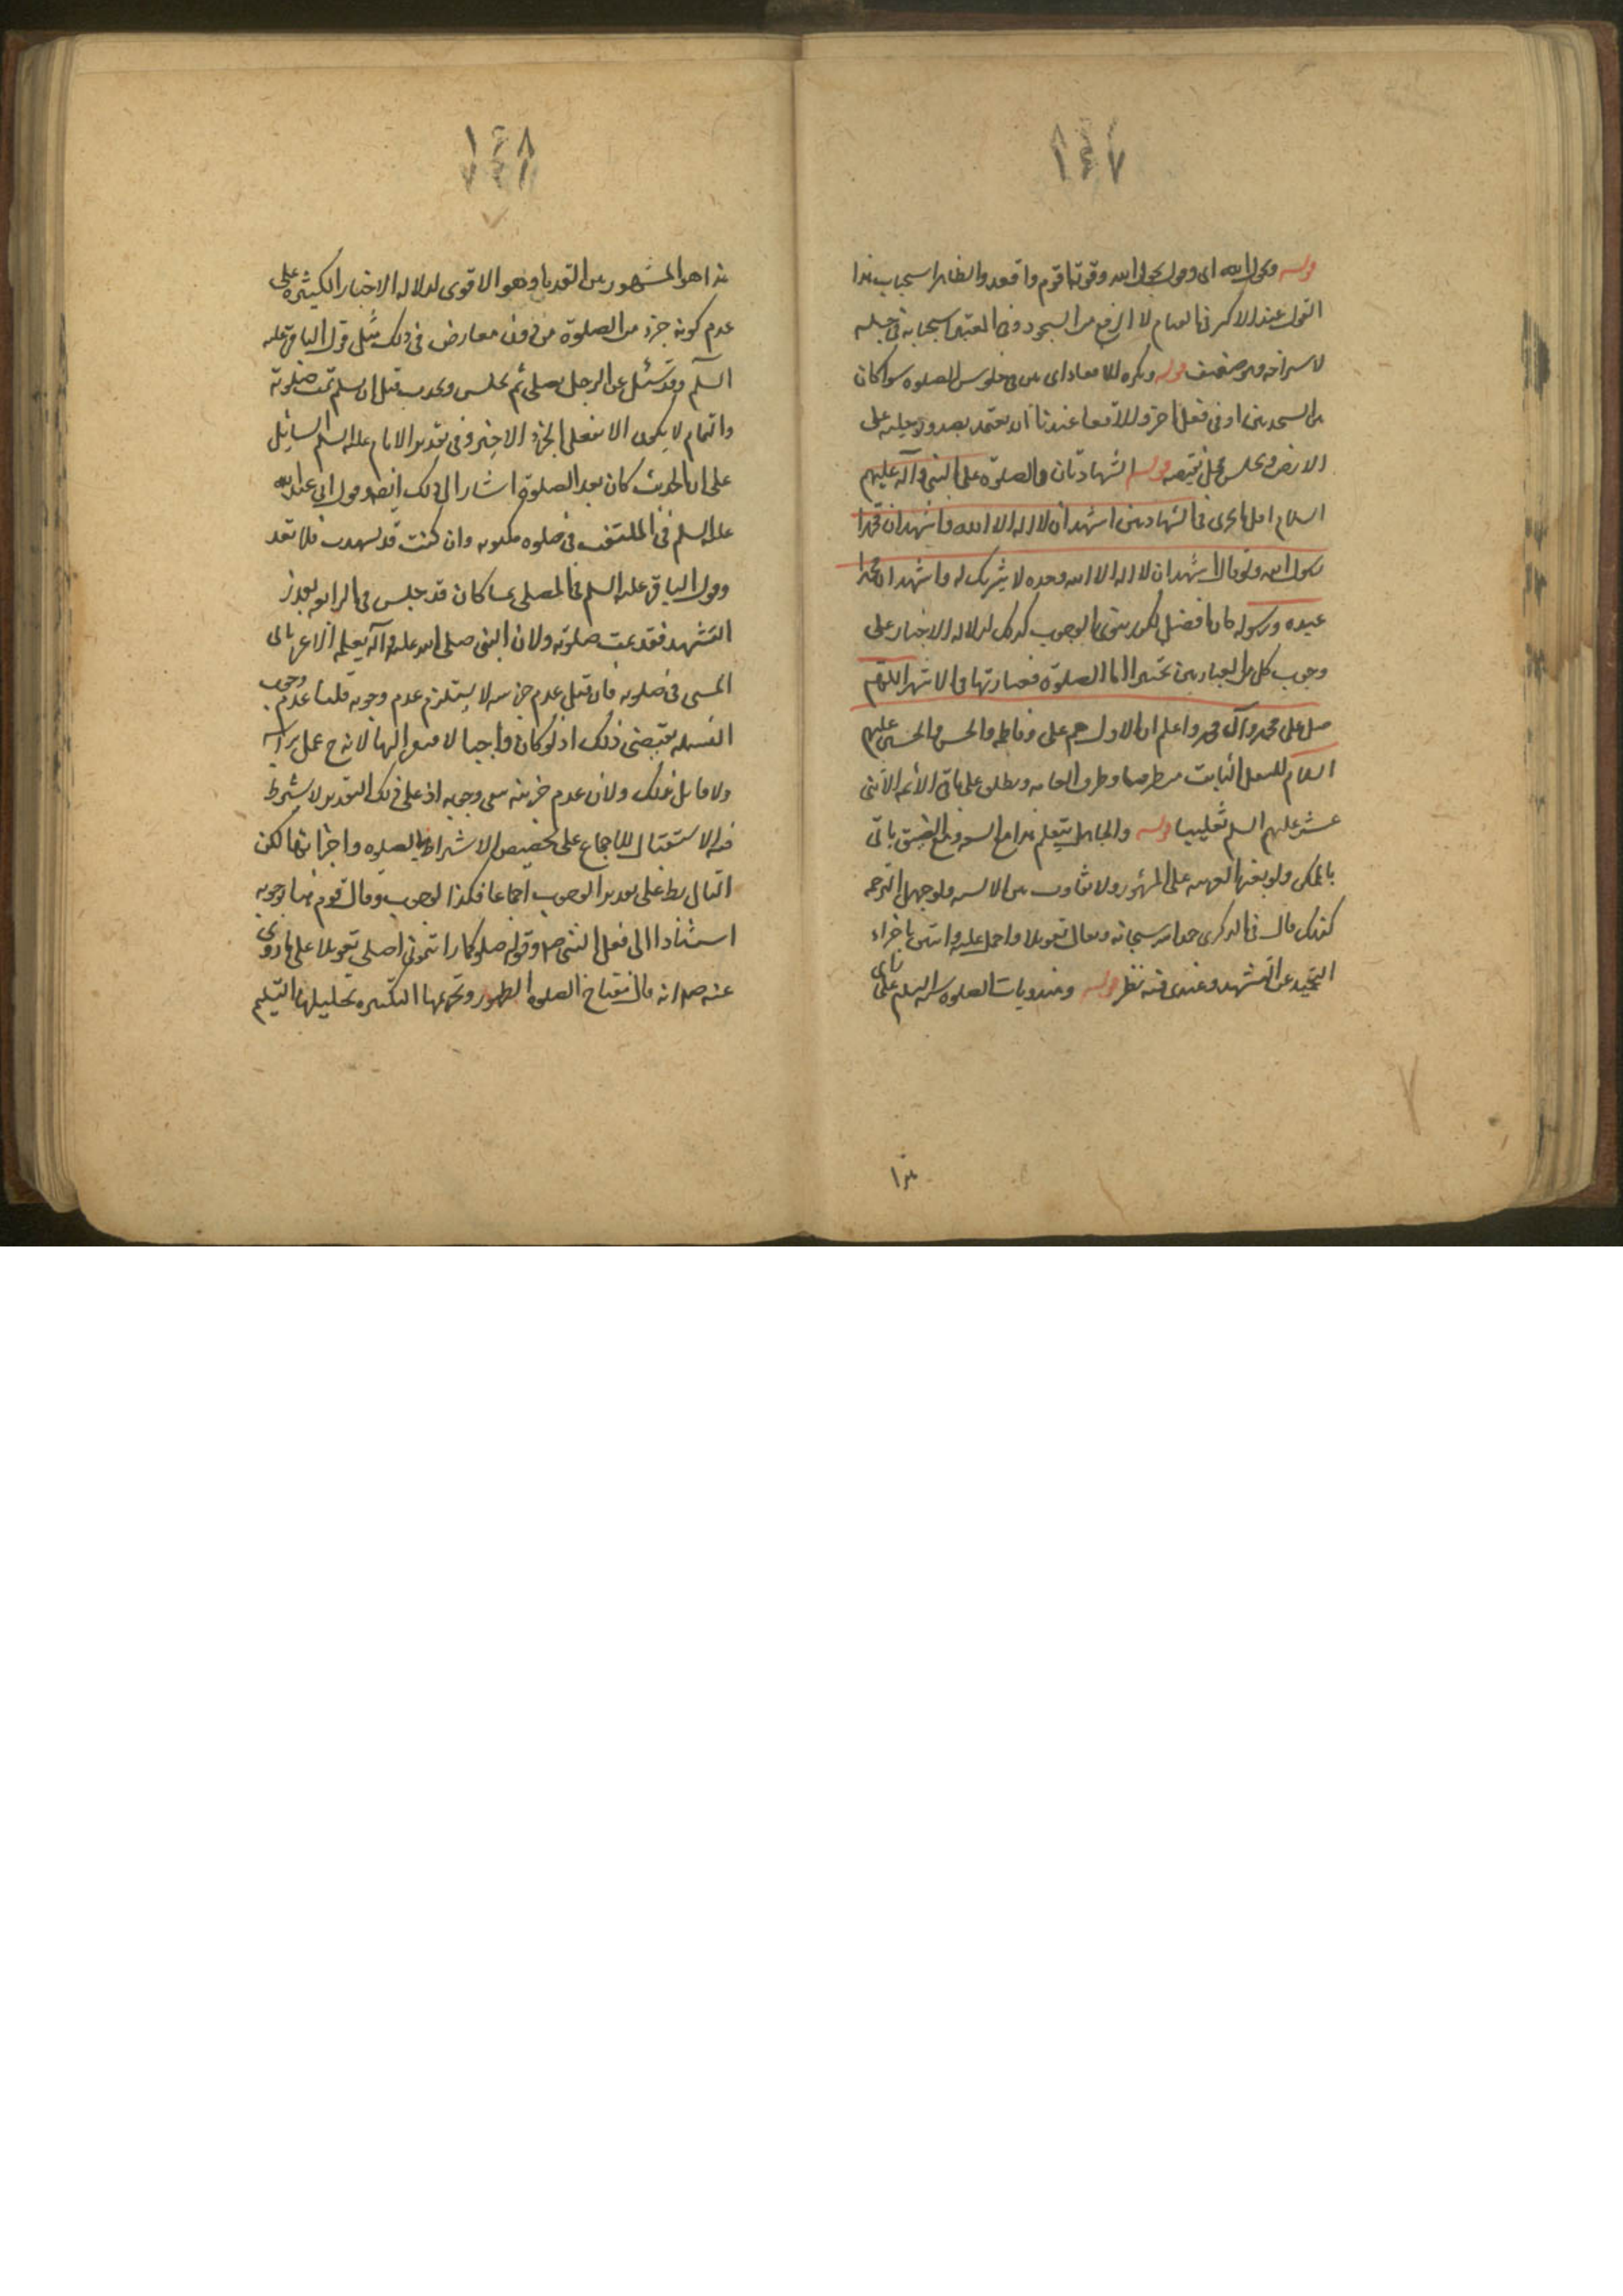 ١٤٧
قوله وبحول الله اى وقول بحول الله وقوته اقوم واقعد والظاهر استحباب هذا
القول عند الاكثر فى القيام لا الرفع من السجود وفى المعتبر استحبابه فى جلسه
الاستراحه وهو ضعيف قوله ويكره الاقعاء اى من فى جلوس الصلوه سوا كان
بين السجدتين او فى فعل اخر والاقعا عندنا ان يعتمد بصدور رجليه على
الارض ويجلس على عقبيه قوله الشهادتان والصلوة على النبى وآله عليهم
السلام اقل ما يجزى فى الشهادتين اشهد ان لا اله الا الله واشهد ان محمدا
رسول الله ولو قال اشهد ان لا اله الا الله وحده لا شريك له واشهد ان محمدا
عبده ورسوله كان افضل لكن ينوى بالوجوب كذلك لدلاله الاخبار على
وجوب كل من العبارتين تخييرا اما الصلوة فعبارتها فى الاشهر اللهم
صل على محمد وآل محمد واعلم ان الاول هم على وفاطمه والحسن والحسين عليهم
السلام للنقل الثابت من طرقنا وطرق العامه ويطلق على باقى الأئمه الاثنى
عشر عليهم السلم تغليبا قوله والجاهل يتعلم مع السعه ومع الضيق ياتى
بالممكن ولو بغير العربيه على المأثور ولا تفاوت بين الالسنه ولو جهل الترجمه
كذلك قال فى الذكرى حمد الله سبحانه وتعالى تعويلا واحمل عليه واستبين باجزاء
التحميد عن التشهد وعندى فيه نظر قوله ومندوبات الصلوه التسليم على راى
هذا
١٤٨
هذا هو المشهور بين القدماء وهو الاقوى لدلاله الاخبار الكثيره على
عدم كونه جزء من الصلوة من دون معارض فى ذلك مثل قول الباقر عليه
السلم وقد سئل عن الرجل يصلى ثم يجلس ويحدث قبل ان يسلم تمت صلوته
والتمام لا يكون الا بفعل الجزء الاخير وفى تقدير الامام عليه السلم السائل
على ان الحديث كان بعد الصلوة اشارا الى ذلك ايضه وقول ابى عبد الله
عليه السلم فى الملتفت فى صلوه مكتوبه وان كنت قد تشهدت فلا تعد
وقول الباقر عليه السلم فى المصلى خمسا كان قد جلس فى الرابعه بقدر
التشهد فقد تمت صلوته ولان النبى صلى الله عليه وآله لم يعلمه الاعرابى
المسىء فى صلوته فان قيل عدم جزئيته لا يستلزم عدم وجوبه قلنا عدم وجوب
البسمله يقتضى ذلك اذ لو كان واجبا لافتقر اليها لانه ح عمل براسه
ولا قائل بذلك ولان عدم جزئيته ينفى وجوبه اذ على ذلك التقدير لا يشترط
فيه الاستقبال للاجماع على تخصيص الاشتراط بالصلوه واجزائها لكن
التالى بط على تقدير الوجوب اجماعا فكذا الوجوب وقال قوم منها بوجوبه
استنادا الى فعل النبى صلم وقوله صلوا كما رايتمونى اصلى تعويلا على ما روى
عنه صلم انه قال مفتاح الصلوة الطهور وتحريمها التكبير وتحليلها التسليم